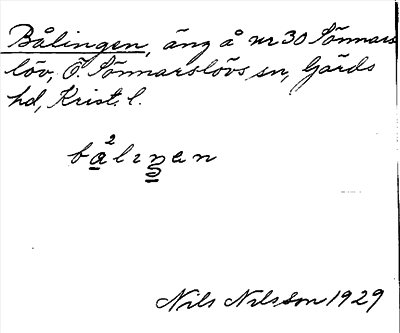 Bålingen, äng å nr 30 Sönnars
löv, Ö. Sönnarslövs sn, Gärds
hd, Krist. l.
ba²lıŋen
Nils Nilsson 1929